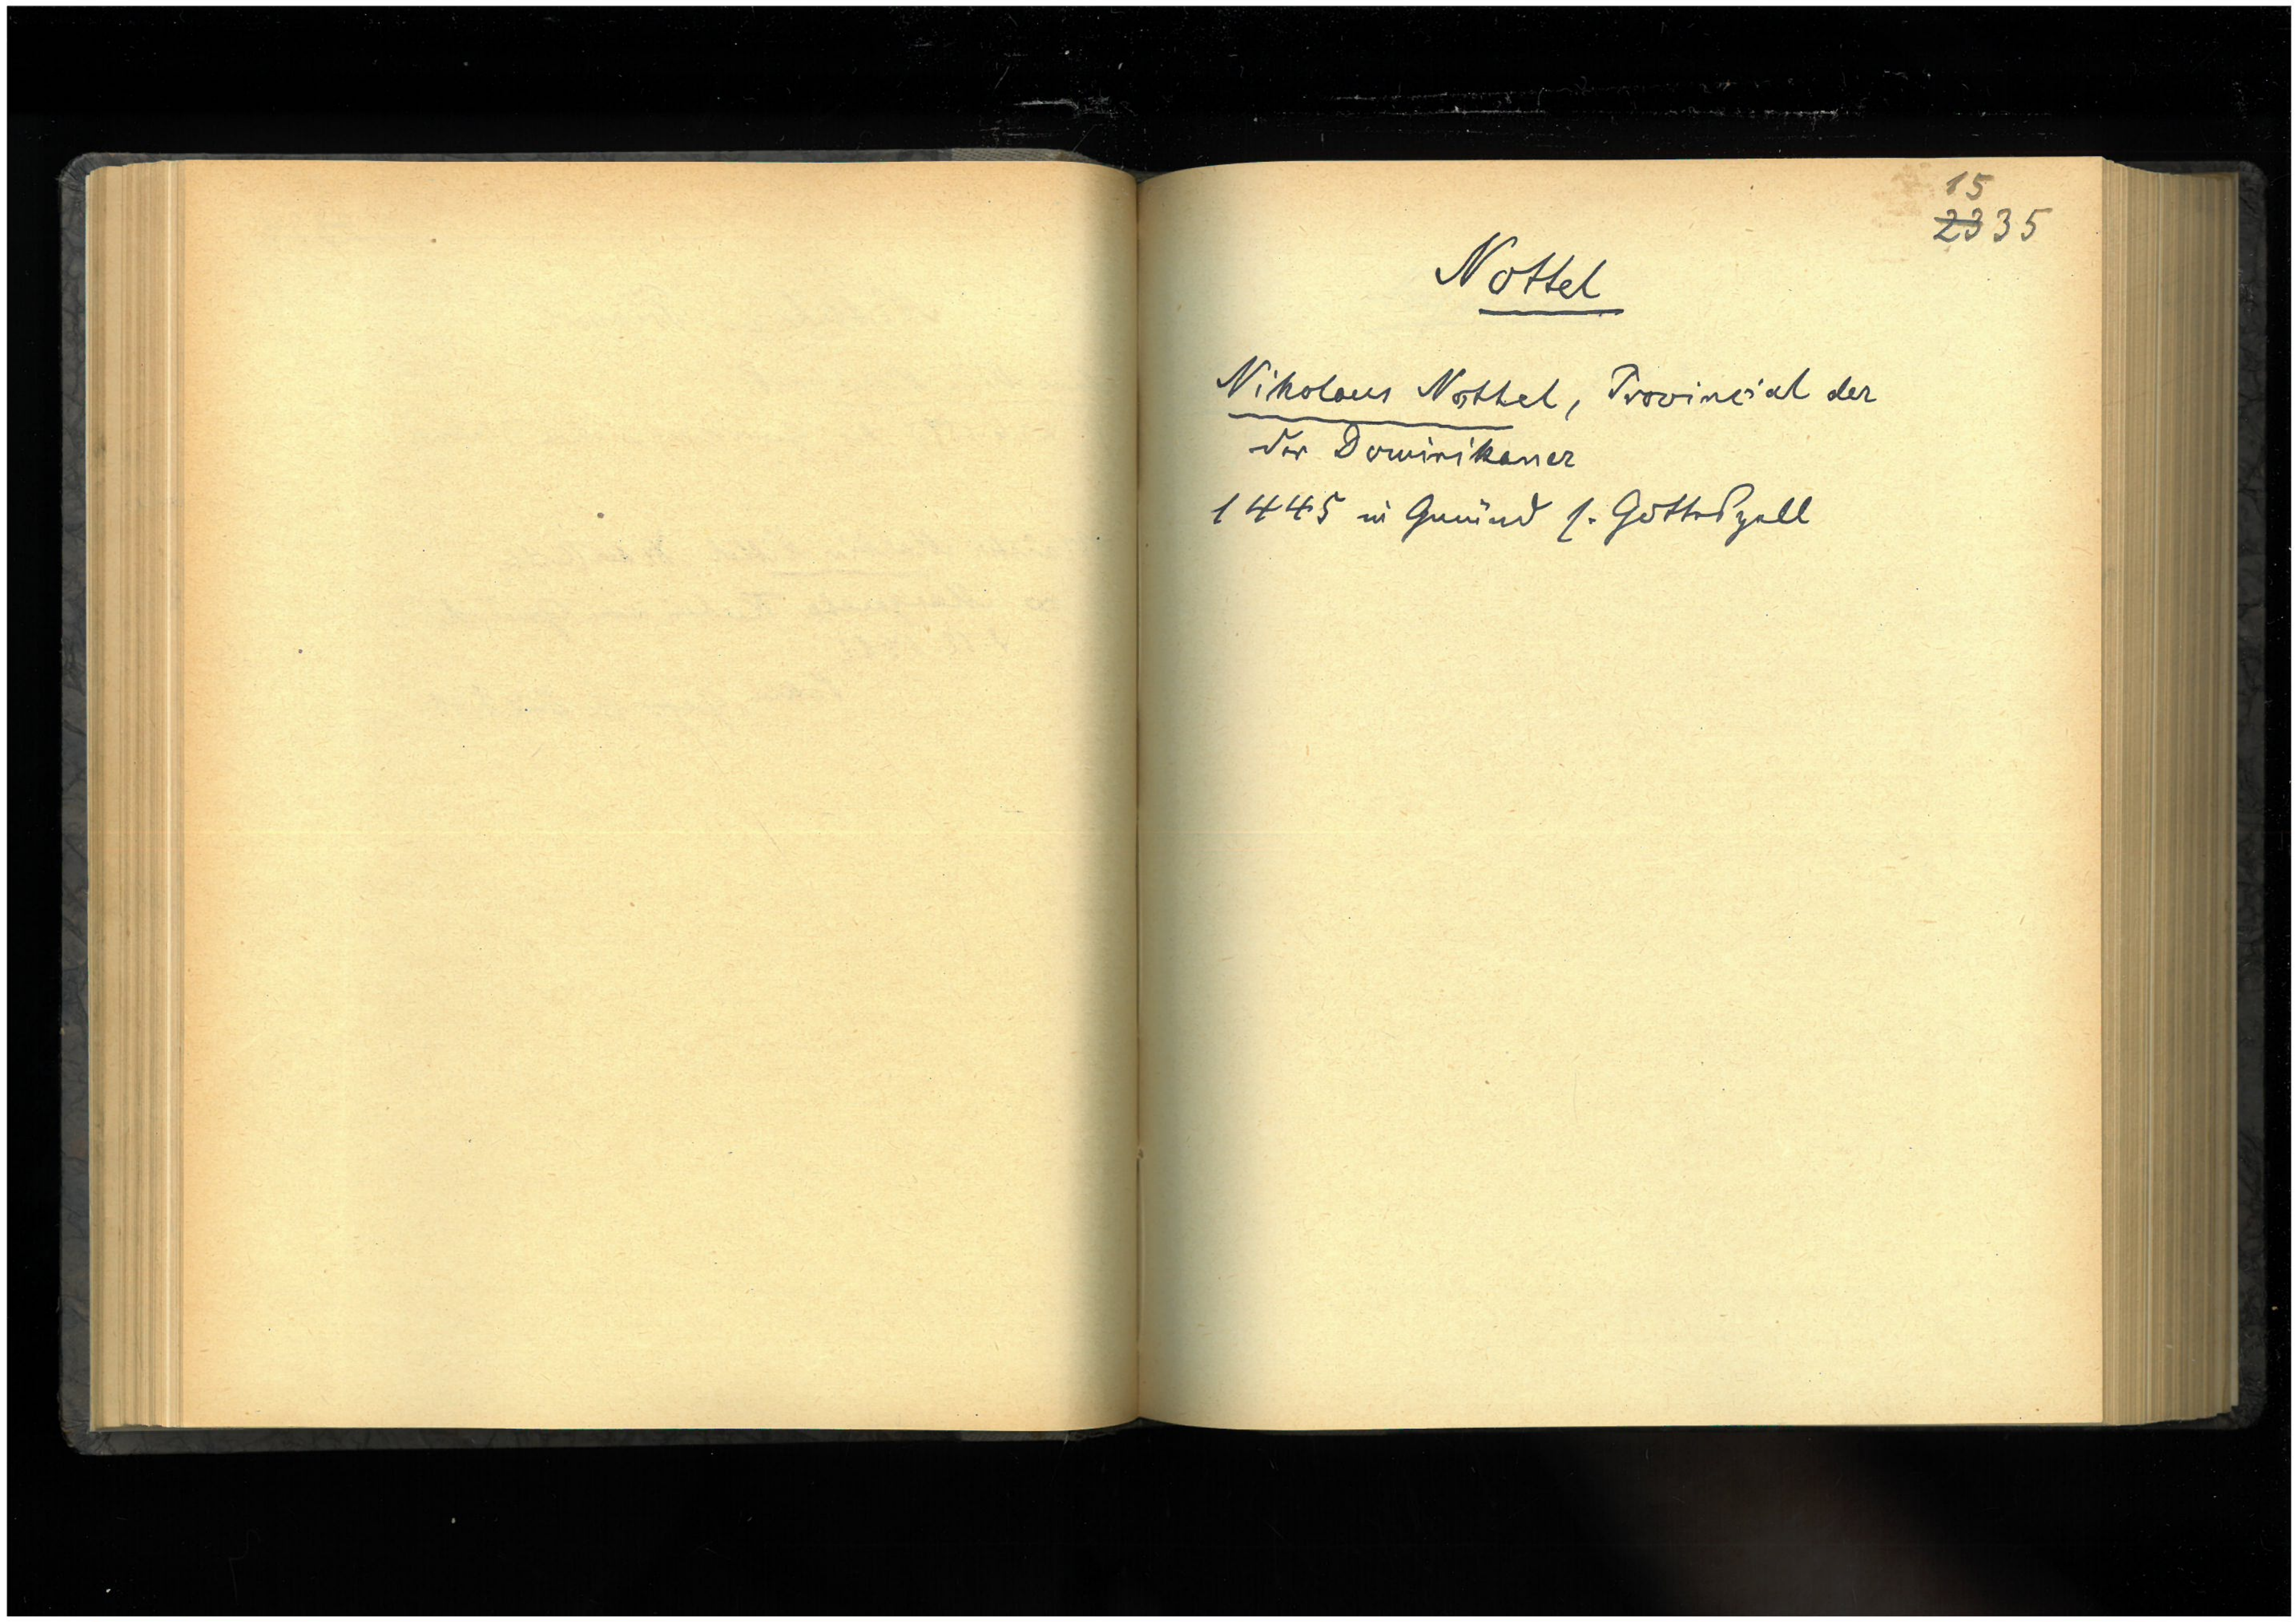 15
2335
Nottel
Nikolaus Nottel, Provincial der
der Dominikaner
1445 in Gmünd s. Gotteszell